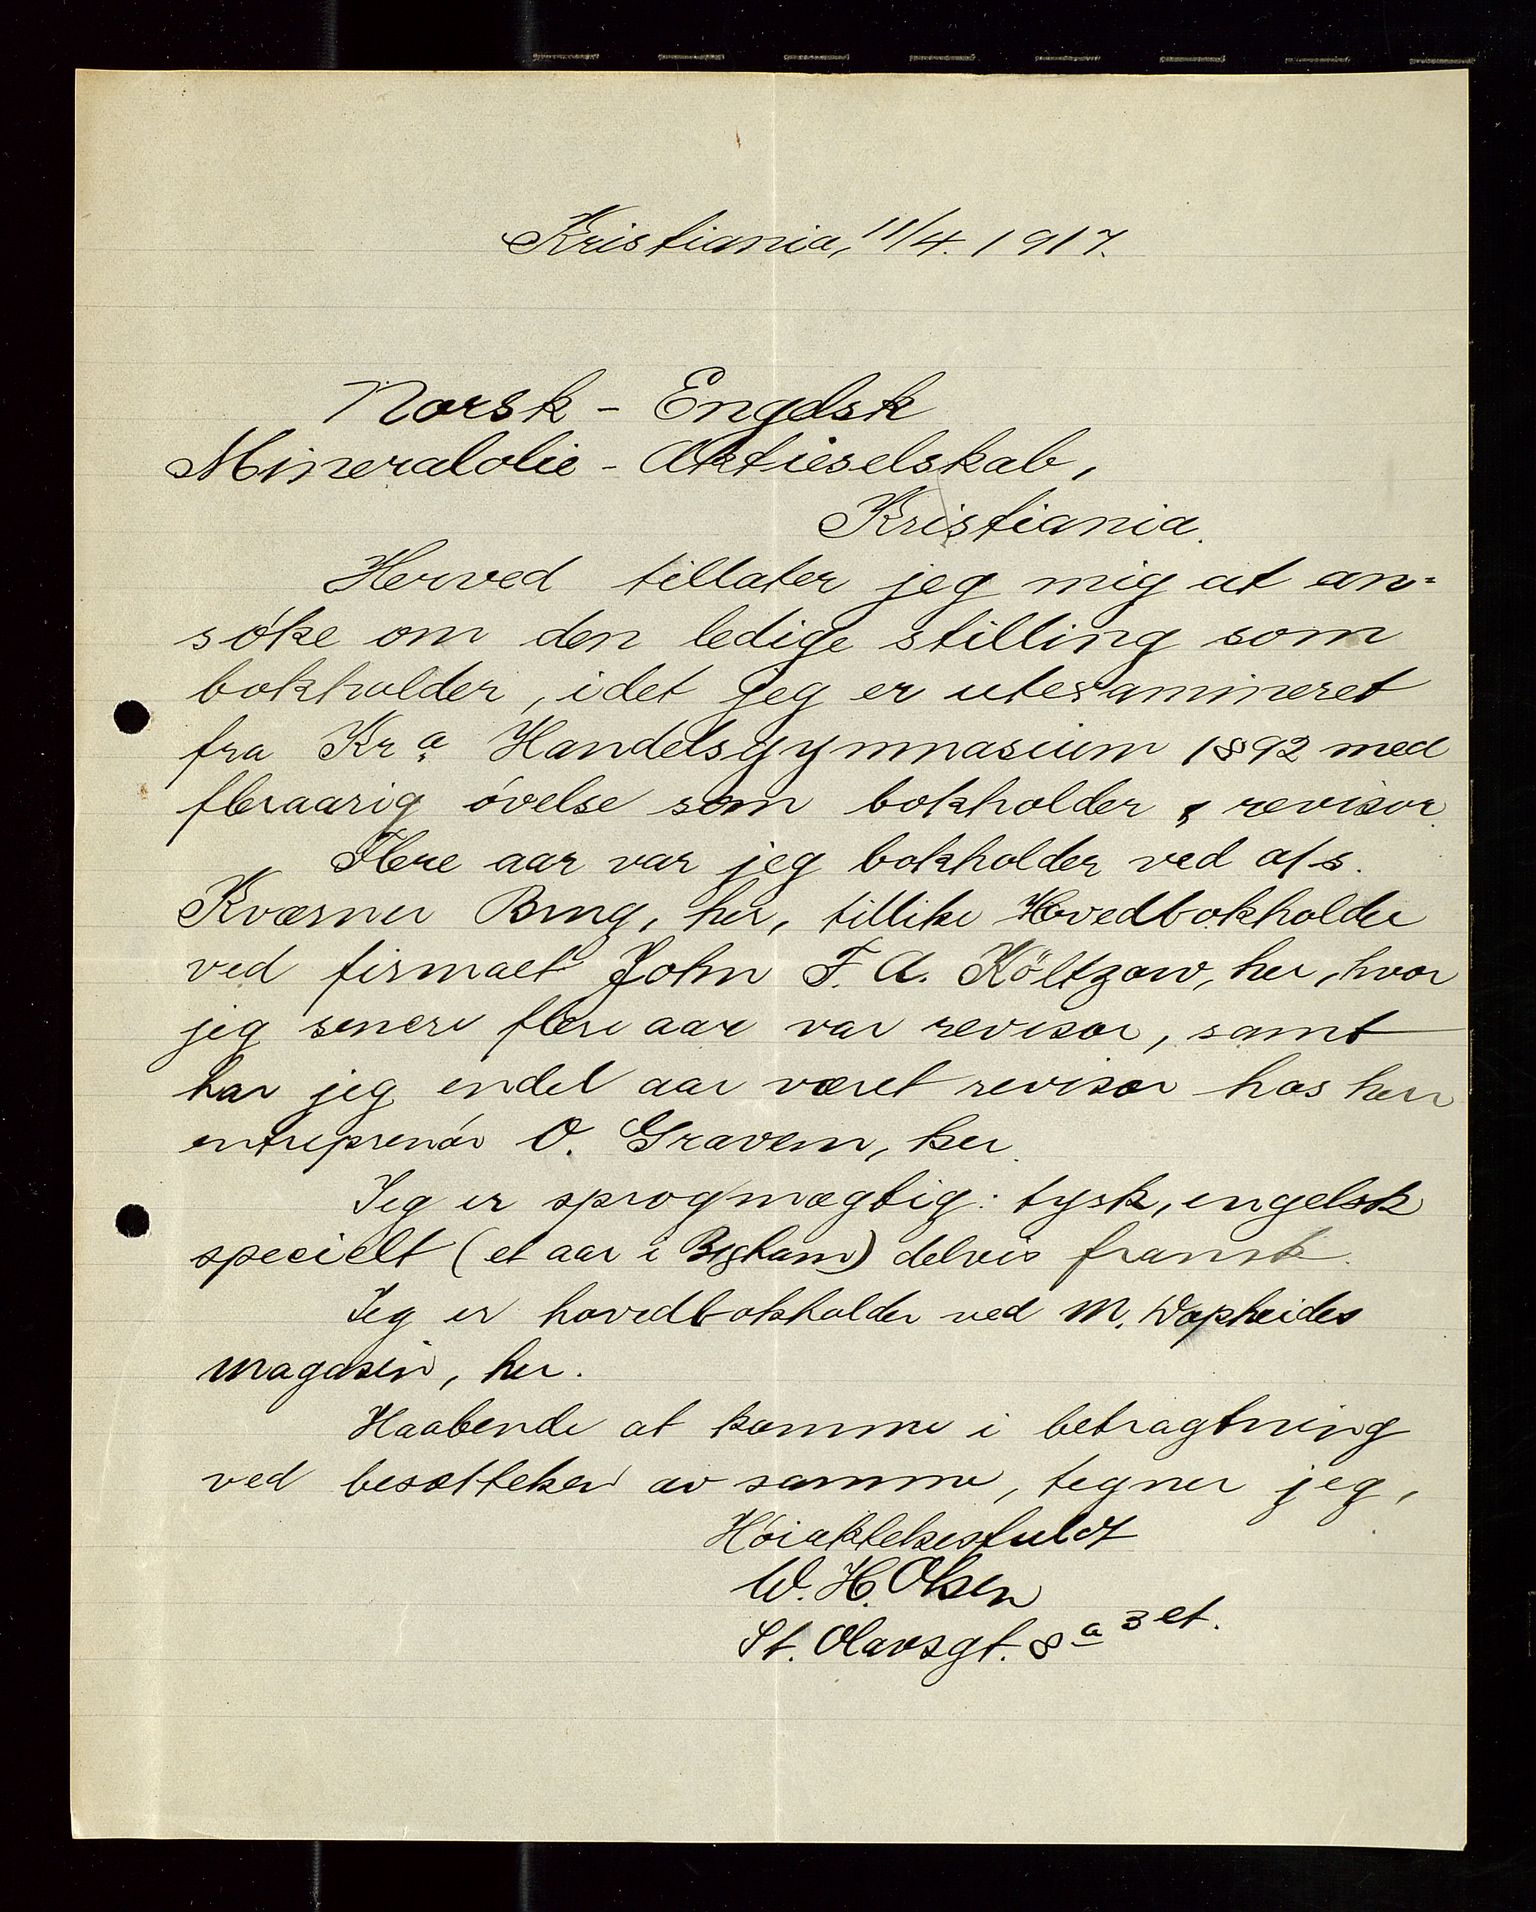 Kristiania, 11/4. 1917.
Norsk - Engelsk
Mineralolie - Aktieselskab,
Kristiania.
Herved tillater jeg mig at an-
søke om den ledige stilling som
bokholder, idet jeg er utexamineret
fra Kra. Handelsgymnasium 1892 med
fleraarig øvelse som bokholder & revisor.
Flere aar var jeg bokholder ved a/s.
Kværner Brug, her, tillike Hovedbokholder
ved firmaet John F. A. Költzow, her, hvor
jeg senere flere aar var revisor, samt
har jeg endel aar været revisor hos herr
entreprenør O. Gravem, her.
Jeg er sprogmægtig: tysk, engelsk
specielt (et aar i) delvis fransk.
Jeg er hovedbokholder ved M.
magasin, her.
Haabende at komme i betragtning
ved besættelsen av samme, tegner jeg,
Høiaktelsesfuldt
W. H. Olsen
St. Olavsgt. 8a 3 et.